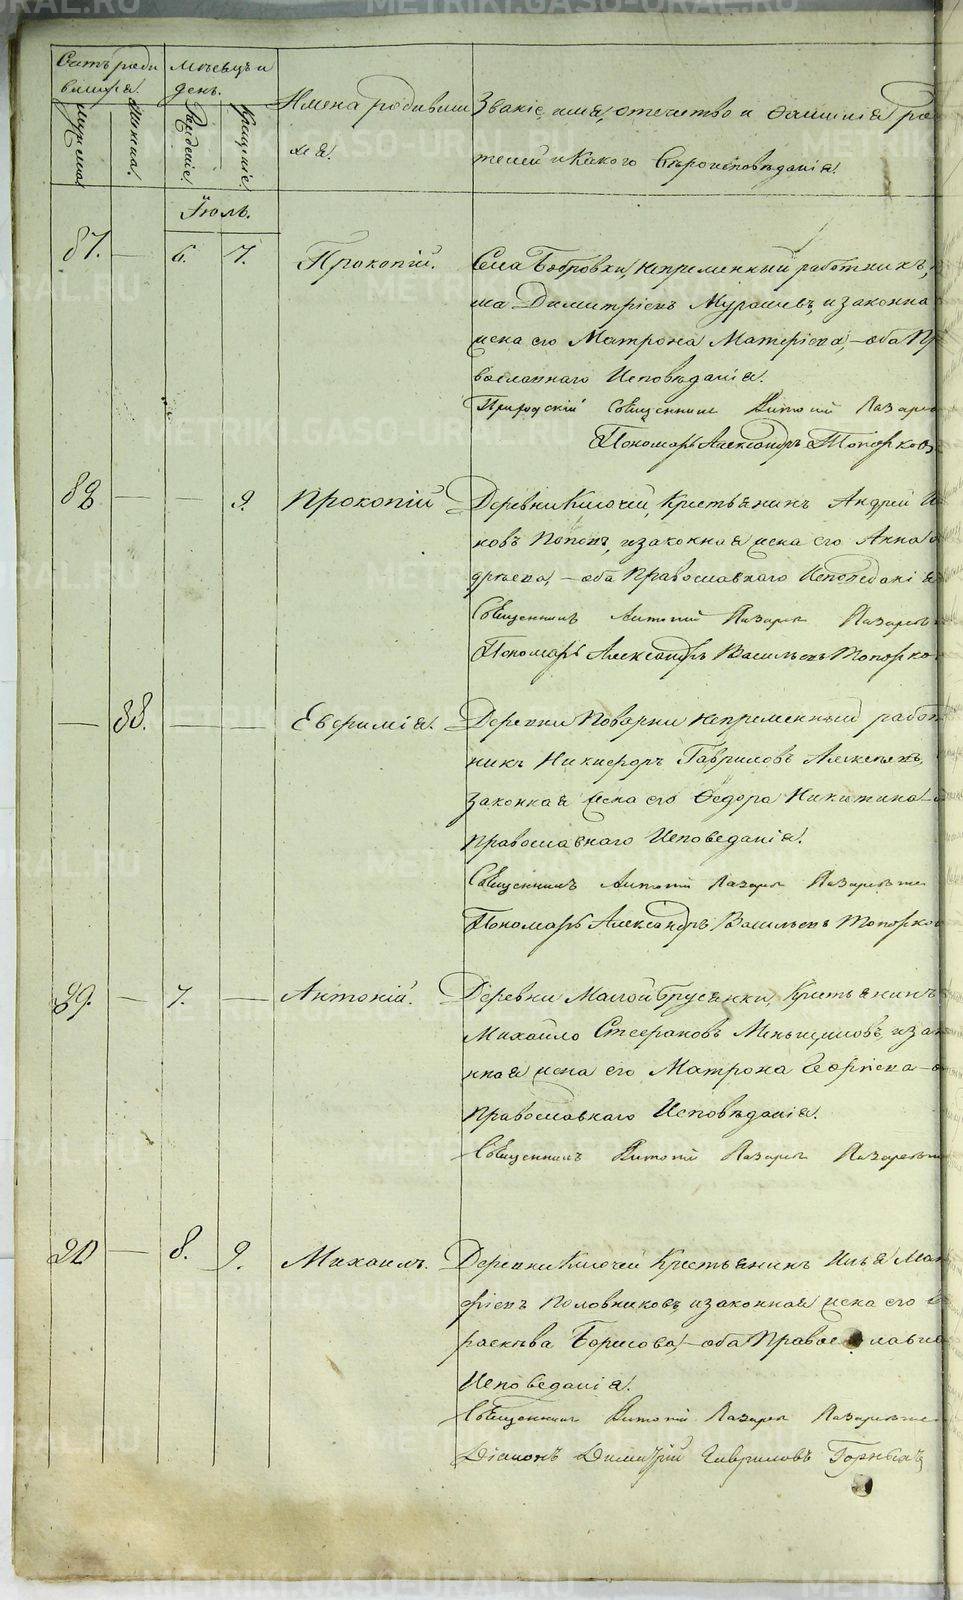 Счетъ роди
вшихся.
Мѣсяцъ и
день.
Мужеска.
Женска.
Рожденiе.
Крещенiе.
Имена родивши
хся.
Званiе, имя, отечество и фамилiя Ро
телей и Какого Вѣроисповѣданiя.
Iюль.
87. — 6. 7. Прокопiй. Села Бобровки, непременный работникъ,
ма Димитрiевъ Мурашевъ, и законна
жена его Матрона Матфiева, — оба Пр
вославнаго Исповѣданiя.
Приходскiй Священникъ Антонiй Лазаре
Пономарь Александръ Топорков
88 — — 9. Прокопiй Деревни Ключей, Крестьянинъ Андрей И
новъ Поповъ, и законная жена его Анна
дрѣева, — оба Православнаго Исповеданiя
Священникъ Антонiй Лазаревъ Лазарев
Пономарь Александръ Васильевъ Топорко
— 88. — — Евфимiя. Деревни Поварни непременный работ
никъ Никифоръ Гавриловъ
законная жена его Федора Никитина —
православнаго Исповеданiя.
Священникъ Антонiй Лазаревъ
Пономарь Александръ Васильевъ Топорков
89. — 7. — Антонiй. Деревни Малой Брусянки, Крестьянинъ
Михайло Стефановъ Меньщиковъ, и зак
нная жена его Матрона Георгiева —
православнаго Исповѣданiя.
Священникъ Антонiй Лазаревъ
90 — 8. 9. Михаилъ. Деревни Ключей Крестьянинъ Илья Мат
фiевъ Половниковъ, и законная жена его
раскѣва Борисова, — оба Православна
Исповеданiя.
Священникъ Антонiй Лазаревъ
Дiаконъ Димитрiй Гавриловъ Горныхъ
METRIKI.GASO-URAL.RU